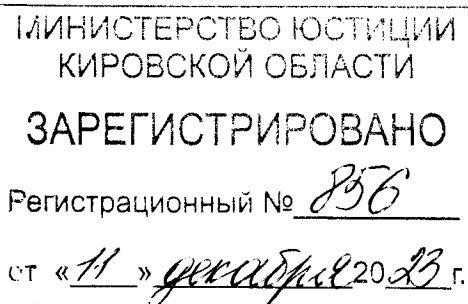 МИНИСТЕРСТВО ЮСТИЦИИ
КИРОВСКОЙ ОБЛАСТИ
ЗАРЕГИСТРИРОВАНО
Регистрационный № 856
от «11» декабря 2023 г.